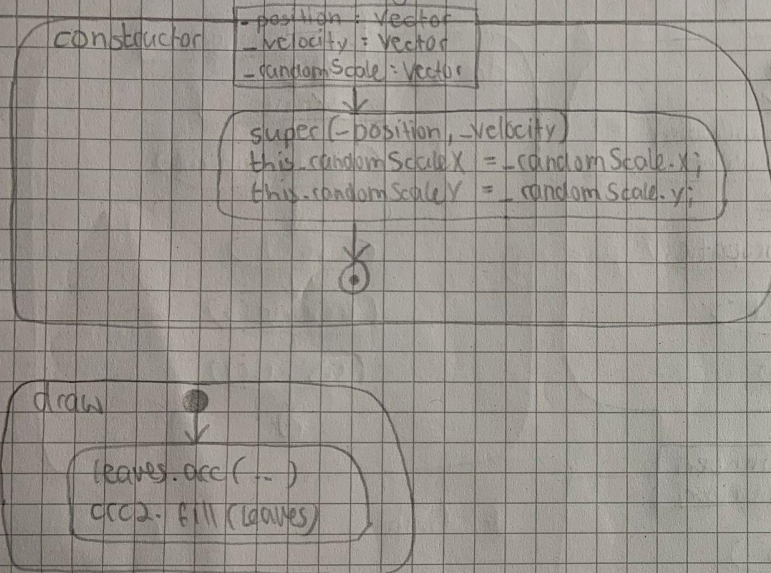 constructor
-position: Vector
_velocity: Vector
_randomScale: Vector
super(_position, _velocity)
this.randomScaleX = _randomScale.x;
this.randomScaleY = _randomScale.y;
draw
leaves.arc(...)
crc2.fill(leaves)